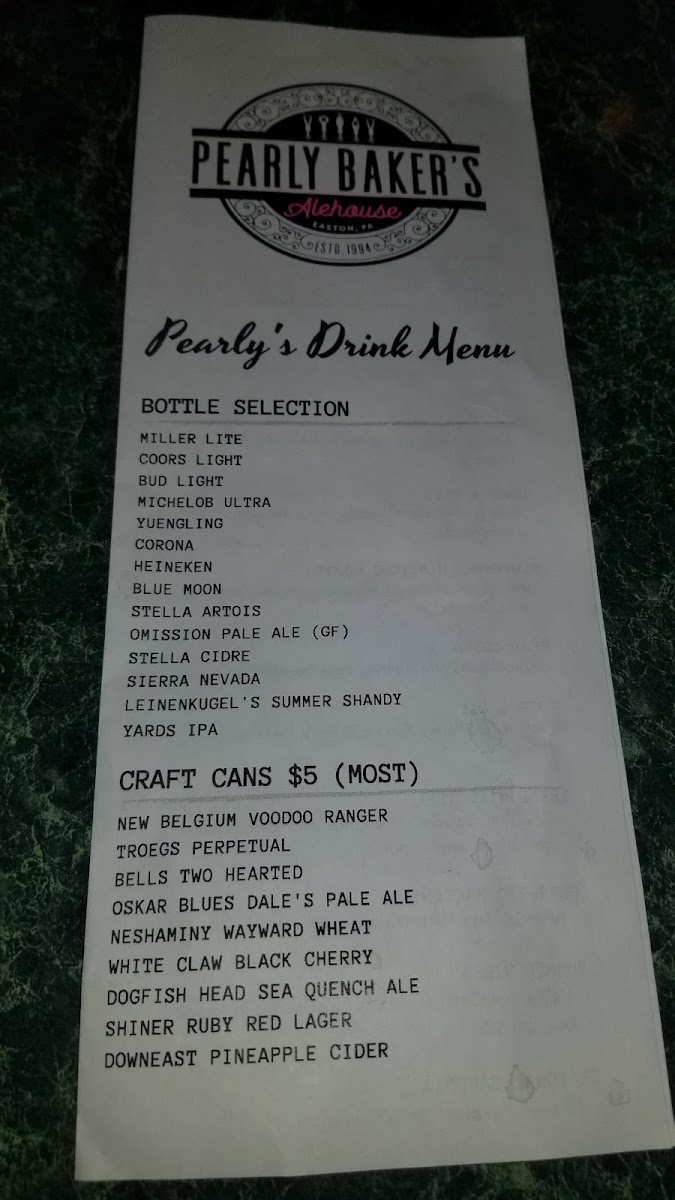 PEARLY BAKER'S
Alehouse
EASTON, PA
ESTD. 1994
Pearly's Drink Menu
BOTTLE SELECTION
MILLER LITE
COORS LIGHT
BUD LIGHT
MICHELOB ULTRA
YUENGLING
CORONA
HEINEKEN
BLUE MOON
STELLA ARTOIS
OMISSION PALE ALE (GF)
STELLA CIDRE
SIERRA NEVADA
LEINENKUGEL'S SUMMER SHANDY
YARDS IPA
CRAFT CANS $5 (MOST)
NEW BELGIUM VOODOO RANGER
TROEGS PERPETUAL
BELLS TWO HEARTED
OSKAR BLUES DALE'S PALE ALE
NESHAMINY WAYWARD WHEAT
WHITE CLAW BLACK CHERRY
DOGFISH HEAD SEA QUENCH ALE
SHINER RUBY RED LAGER
DOWNEAST PINEAPPLE CIDER